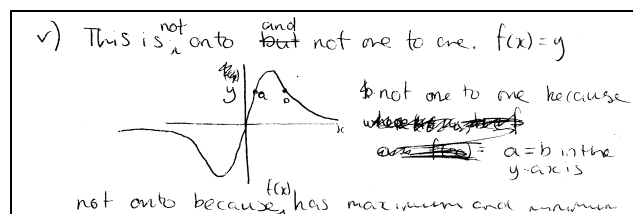 v) This is not onto and but not one to one. f(x) = y
f(x)
y
a
b
x
not one to one because
a = b in the
y-axis
not onto because f(x) has maximum and minimum